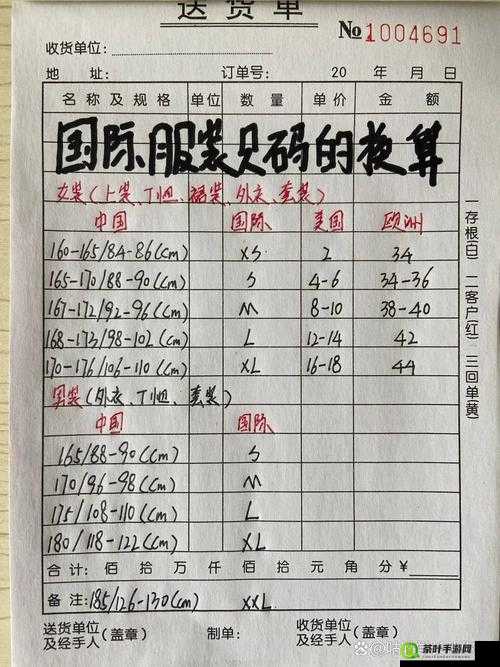 送货单
№1004691
收货单位:
地 址: 订单号: 20 年 月 日
名称及规格 单位 数量 单价 金额
国际服装尺码的换算
女装(上装、T恤、裙装、外衣、套装)
中国 国际 美国 欧洲
160-165/84-86(cm) XS 2 34
165-170/88-90(cm) S 4-6 34-36
167-172/92-96(cm) M 8-10 38-40
168-173/98-102(cm) L 12-14 42
170-176/106-110(cm) XL 16-18 44
男装(外衣、T恤、套装)
中国 国际
165/88-90(cm) S
170/96-98(cm) M
175/108-110(cm) L
180/118-122(cm) XL
合计: 佰 拾 万 仟 佰 拾 元 角 分 ¥
备注: 185/126-130(cm) XXL
送货单位及经手人(盖章) 制单: 收货单位及经手人(盖章)
一存根(白) 二客户(红) 三回单(黄)
茶叶手游网